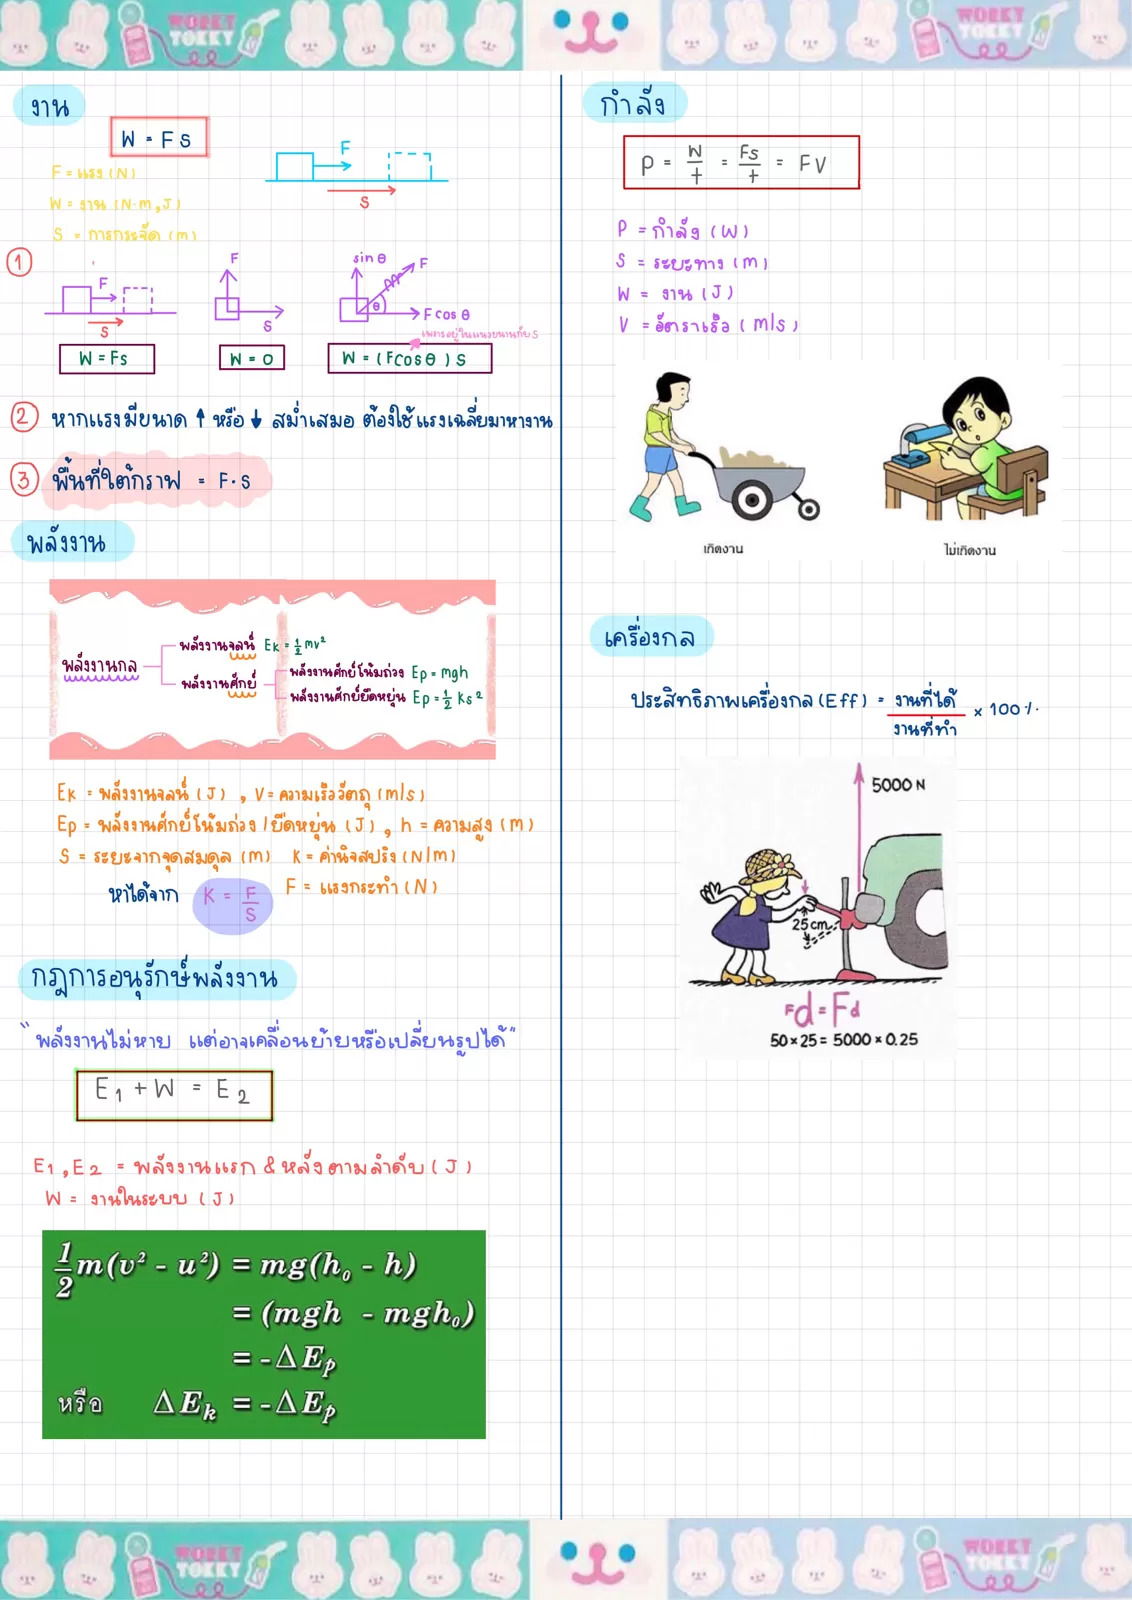 WORKY
TOKKY
WORKY
TOKKY
งาน
W = F s
F
S
F = แรง (N)
W = งาน (N·m, J)
S = การกระจัด (m)
1
F
S
W = Fs
F
S
W = 0
sin θ
F
θ
F cos θ
เพราะอยู่ในแนวขนานกับ S
W = (F cos θ) S
2 หากแรงมีขนาด ↑ หรือ ↓ สม่ำเสมอ ต้องใช้แรงเฉลี่ยมาหางาน
3 พื้นที่ใต้กราฟ = F·s
พลังงาน
พลังงานกล
พลังงานจลน์ Ek = ½mv²
พลังงานศักย์
พลังงานศักย์โน้มถ่วง Ep = mgh
พลังงานศักย์ยืดหยุ่น Ep = ½ Ks²
Ek = พลังงานจลน์ (J) , V = ความเร็ววัตถุ (m/s)
Ep = พลังงานศักย์โน้มถ่วง / ยืดหยุ่น (J) , h = ความสูง (m)
S = ระยะจากจุดสมดุล (m) K = ค่านิจสปริง (N/m)
หาได้จาก K = F/S F = แรงกระทำ (N)
กฎการอนุรักษ์พลังงาน
"พลังงานไม่หาย แต่อาจเคลื่อนย้ายหรือเปลี่ยนรูปได้"
E₁ + W = E₂
E1, E2 = พลังงานแรก & หลังตามลำดับ (J)
W = งานในระบบ (J)
½m(v² - u²) = mg(h₀ - h)
= (mgh - mgh₀)
= -ΔEp
หรือ ΔEk = -ΔEp
กำลัง
P = W/t = Fs/t = FV
P = กำลัง (W)
S = ระยะทาง (m)
W = งาน (J)
V = อัตราเร็ว (m/s)
เกิดงาน
ไม่เกิดงาน
เครื่องกล
ประสิทธิภาพเครื่องกล (Eff) = งานที่ได้/งานที่ทำ × 100%
5000 N
25cm
Fd = Fd
50 × 25 = 5000 × 0.25
WORKY
TOKKY
WORKY
TOKKY